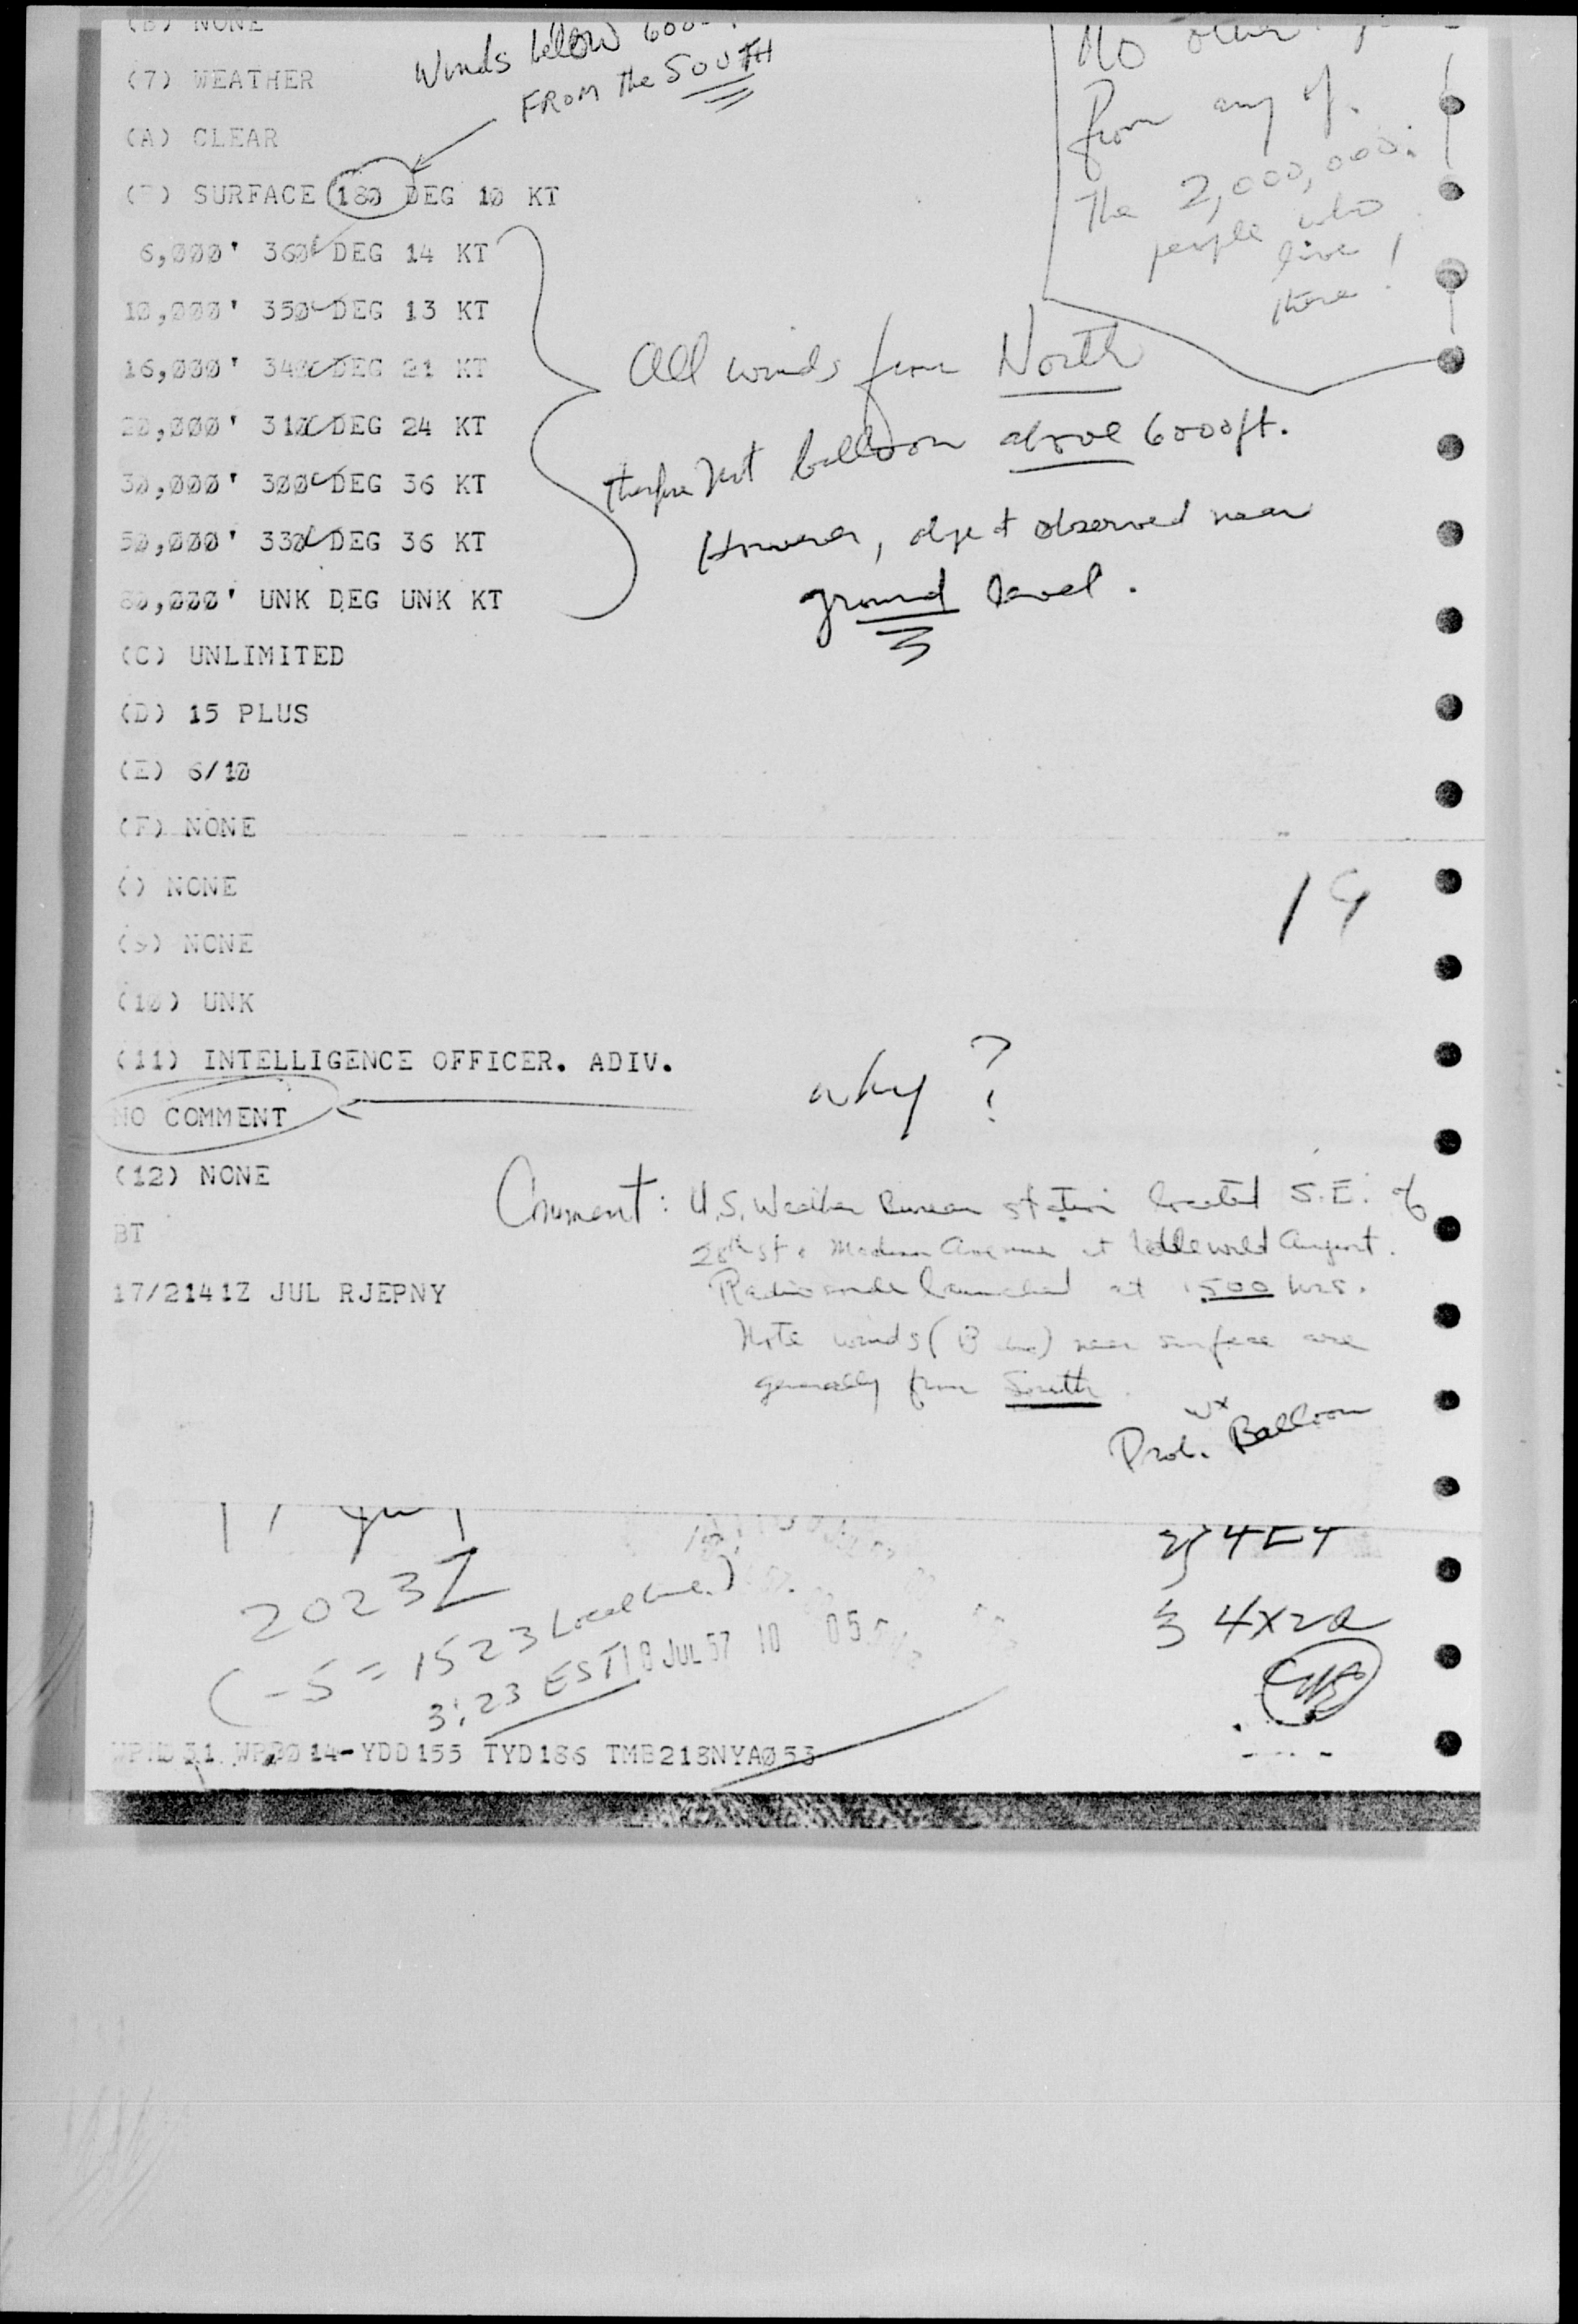 (B) NONE
Winds below 600
FROM the SOUTH
No other
from any of
The 2,000,000
people who
live
there!
(7) WEATHER
(A) CLEAR
( ) SURFACE 180 DEG 10 KT
6,000' 360 DEG 14 KT
10,000' 350 DEG 13 KT
16,000' 340 DEG 21 KT
20,000' 310 DEG 24 KT
30,000' 300 DEG 36 KT
50,000' 330 DEG 36 KT
80,000' UNK DEG UNK KT
All winds from North
therefore Not balloon above 6000ft.
However, object observed near
ground level.
(C) UNLIMITED
(D) 15 PLUS
(E) 6/10
(F) NONE
() NONE
19
(9) NONE
(10) UNK
(11) INTELLIGENCE OFFICER. ADIV.
why?
NO COMMENT
(12) NONE
Comment: U.S. Weather Bureau station located S.E. of
28th St & Madison Avenue at Idlewild Airport.
Radiosonde launched at 1500 hrs.
Note winds (B ) near surface are
generally from South.
BT
17/2141Z JUL RJEPNY
Prob. Wx Balloon
2023Z
(-5 = 1523 Local time)
3:23 EST
18 JUL 57 10 05
4x2a
31 014-YDD155 TYD186 TMB218NYA053